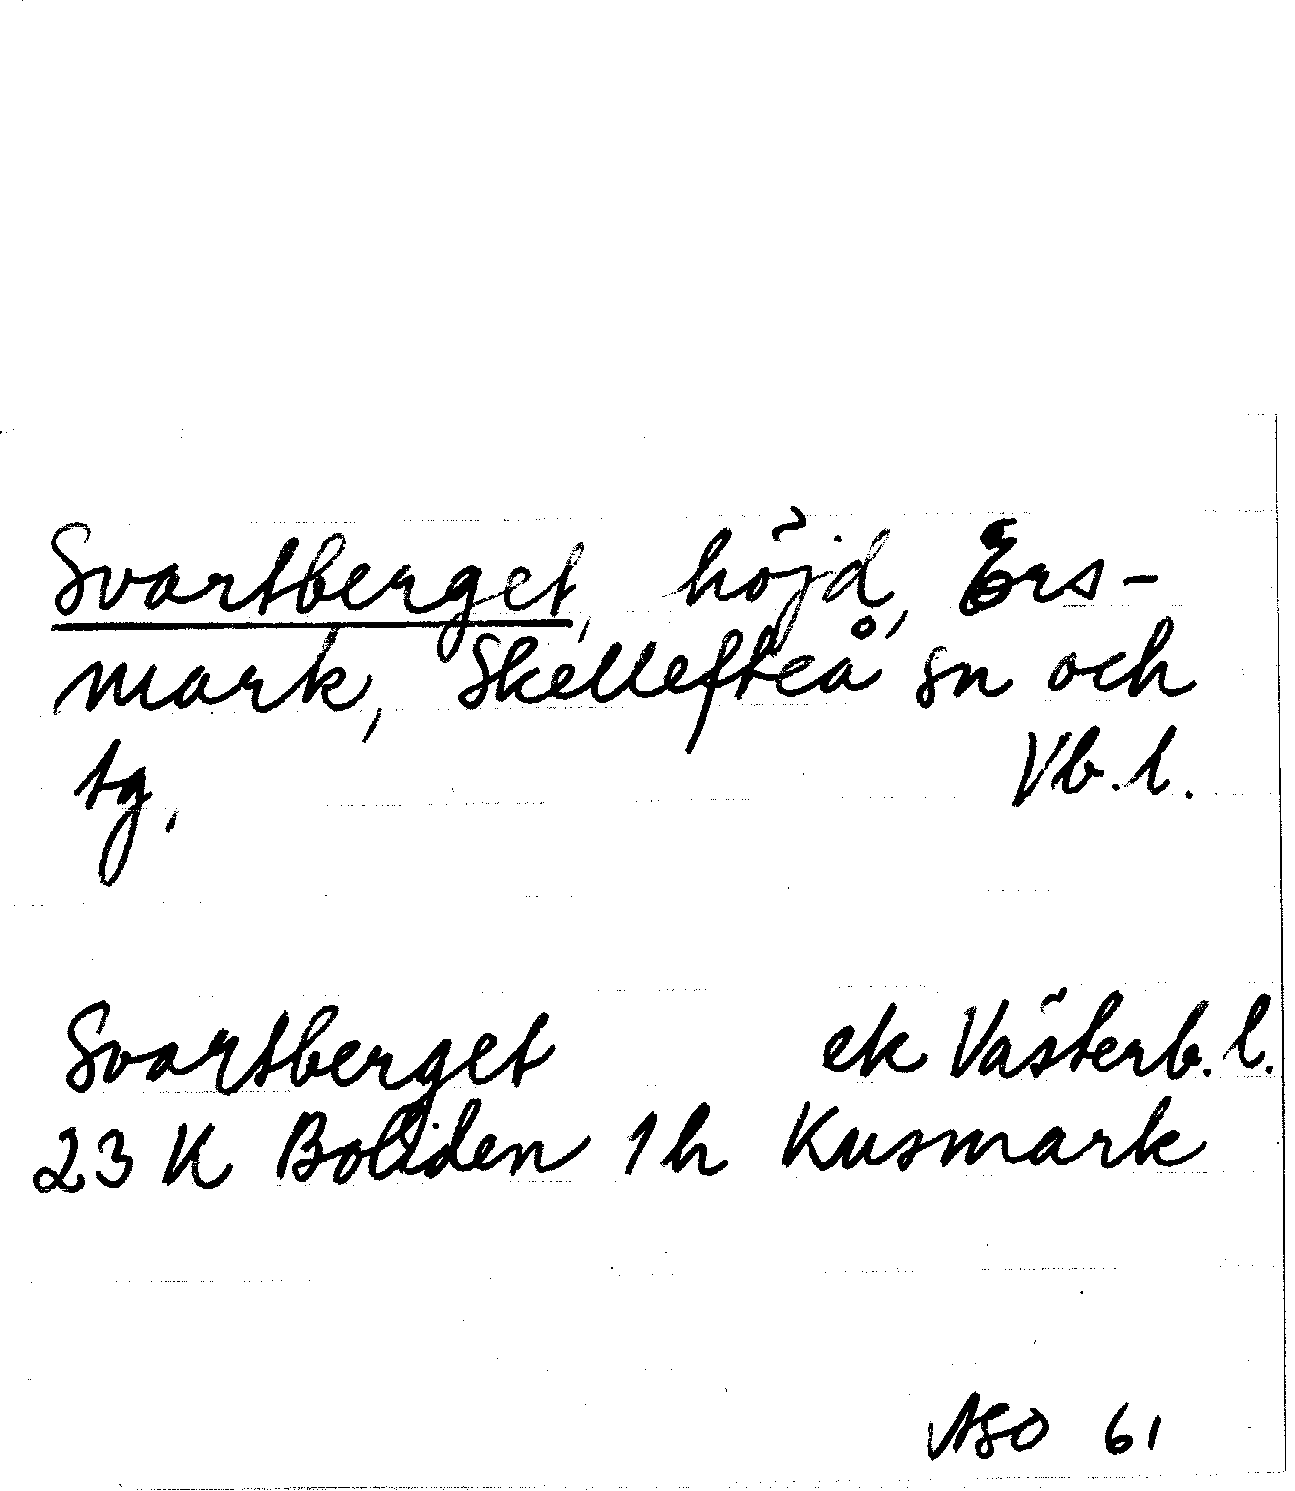 Svartberget, höjd, Ers-
mark, Skellefteå sn och
tg, Vb.l.
Svartberget ek Västerb.l.
23 K Boliden 1 h Kusmark
ASO 61